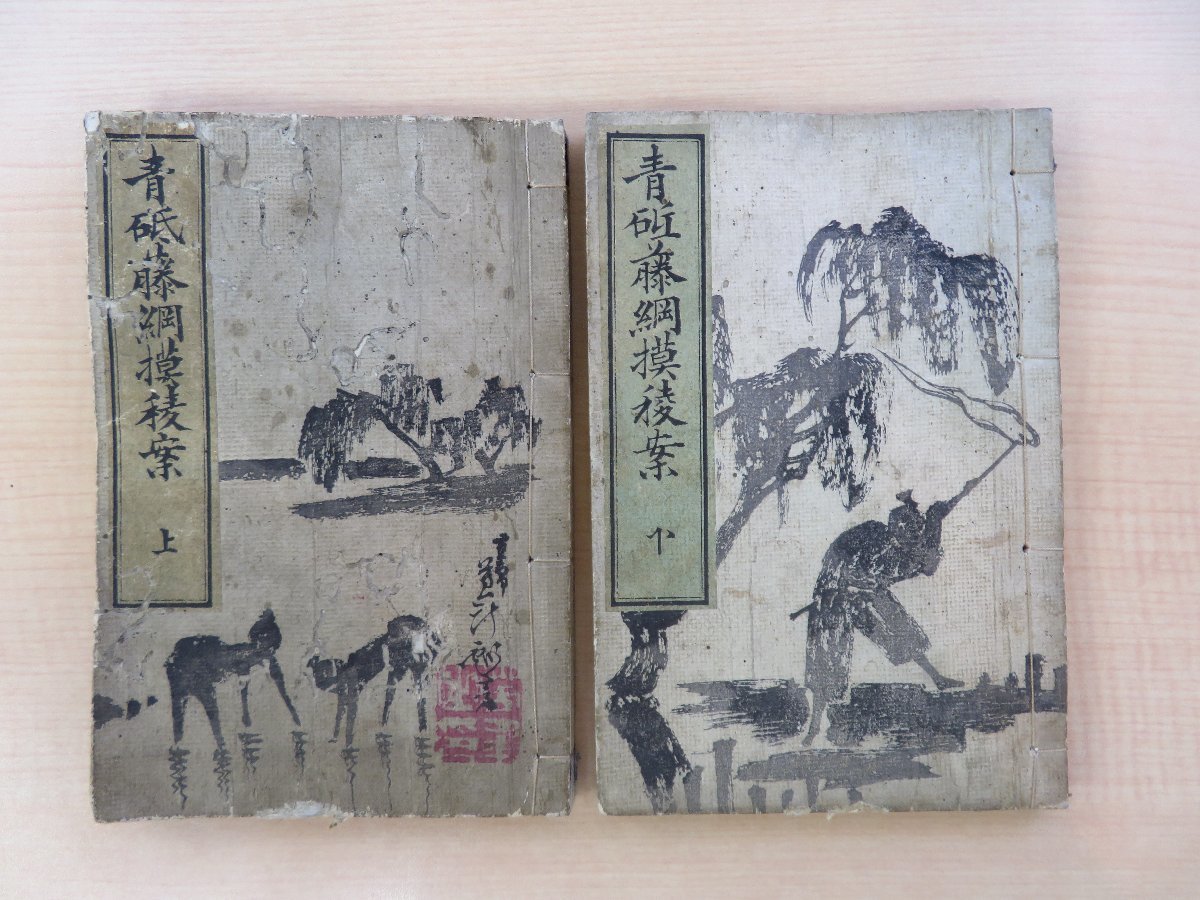 青砥藤綱摸稜案
上
青砥藤綱摸稜案
下